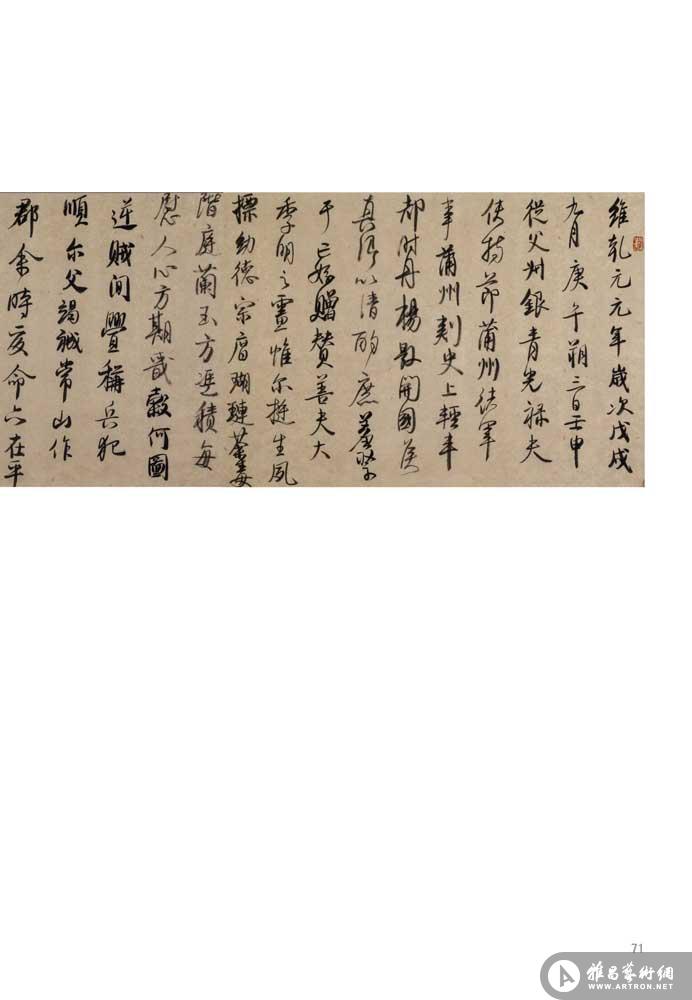 維乾元元年歲次戊戌
九月庚午朔三日壬申
從父州銀青光祿夫
使持節蒲州諸軍
事蒲州刺史上輕車
都尉丹楊縣開國侯
真卿以清酌庶羞祭
于亡姪贈贊善夫大
季明之靈惟尔挺生夙
摽幼德宗廟瑚璉
階庭蘭玉方憑積每
慰人心方期戩穀何圖
逆賊間釁稱兵犯
順尔父竭誠常山作
郡余時受命亦在平
71
雅昌藝術網
WWW.ARTRON.NET